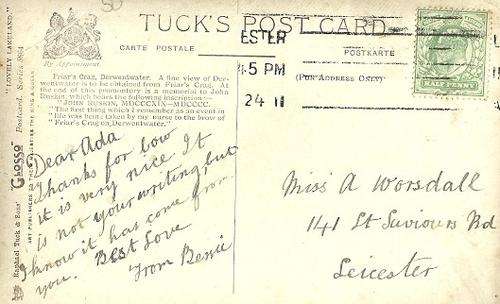 50
TUCK'S POST CARD
CARTE POSTALE
POSTKARTE
(FOR ADDRESS ONLY)
By Appointment
Friar's Crag, Derwentwater. A fine view of Der-
wentwater is to be obtained from Friar's Crag. At
the end of this promontory is a memorial to John
Ruskin which bears the following inscription:—
"JOHN RUSKIN, MDCCCXIX—MDCCCC.
"The first thing which I remember as an event in
"life was being taken by my nurse to the brow of
"Friar's Crag on Derwentwater."
ESTER
45 PM
24 11
HALF PENNY
"LOVELY LAKELAND."
Raphael Tuck & Sons' "GLOSSO" Postcard, Series 8654
Dear Ada
Thanks for bow
it is very nice It
is not your writing, but
I know it has come from
you. Best Love
From Bessie
Miss A Worsdall
141 St Saviours Rd
Leicester